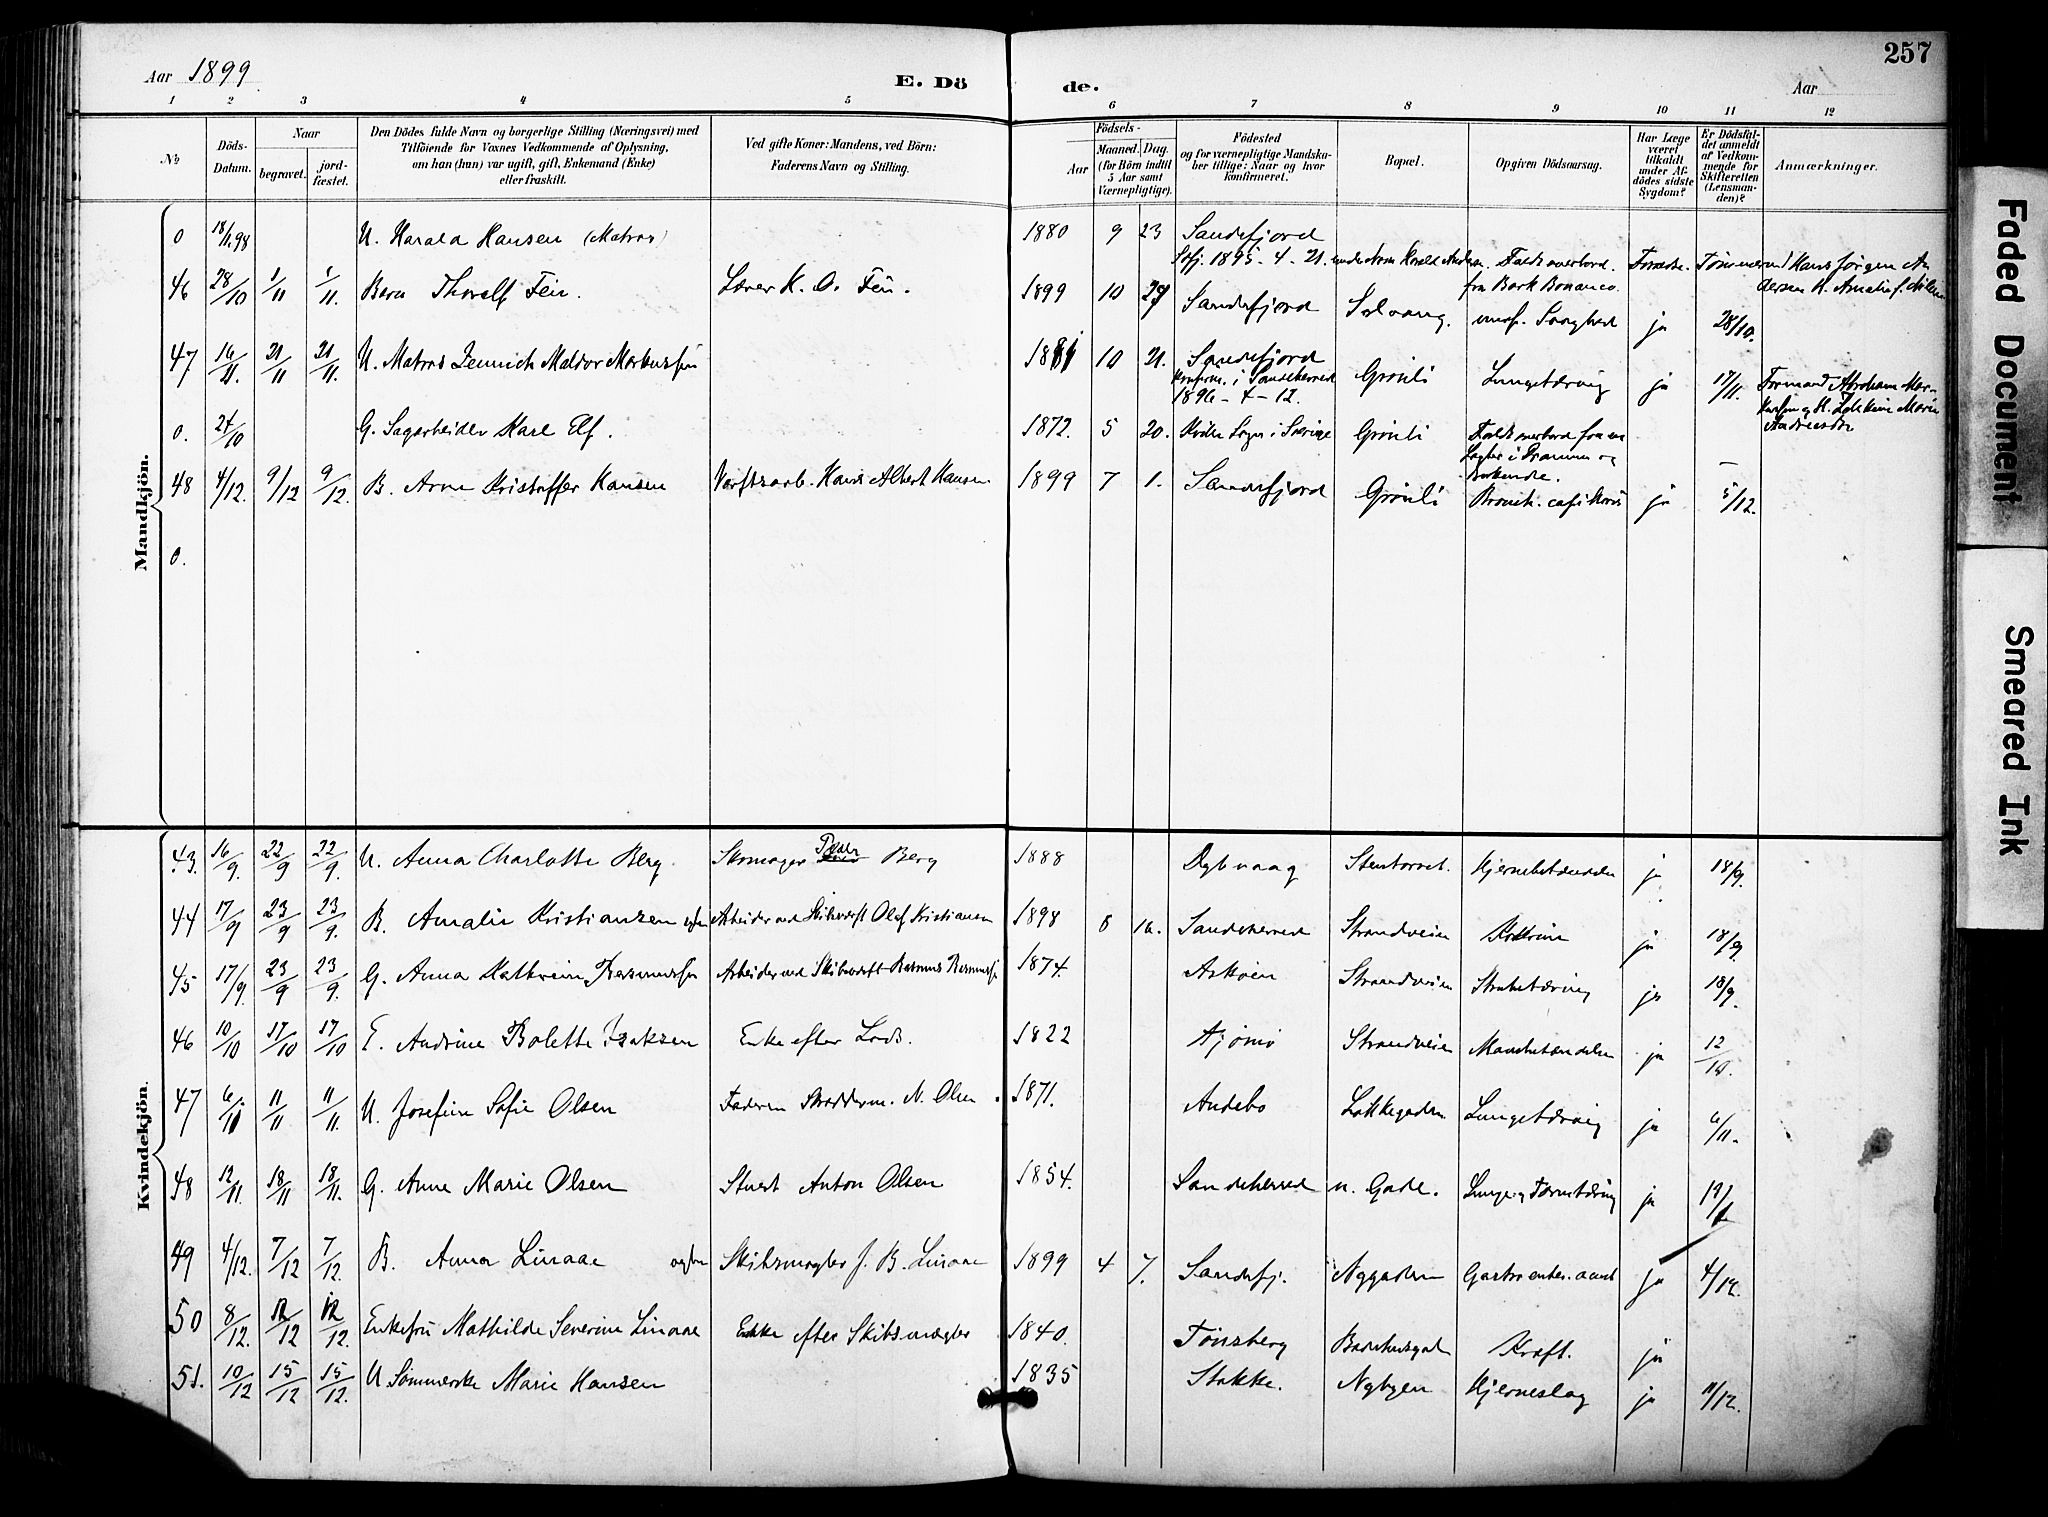 257
Aar 1899
E. Dö
de.
Aar
1 2 3 4 5 6 7 8 9 10 11 12
No
Döds-Datum.
Naar
begravet.
jordfæstet.
Den Dödes fulde Navn og borgerlige Stilling (Næringsvei) med
Tilföiende for Voxnes Vedkommende af Oplysning,
om han (hun) var ugift, gift, Enkemand (Enke)
eller fraskilt.
Ved gifte Koner: Mandens, ved Börn:
Faderens Navn og Stilling.
Födsels-
Aar
Maaned. Dag.
(for Börn indtil
5 Aar samt
Værnepligtige).
Födested
og for værnepligtige Mandska-
ber tillige: Naar og hvor
konfirmeret.
Bopæl.
Opgiven Dödsaarsag.
Har Læge
været
tilkaldt
under Af-
dödes sidste
Sygdom?
Er Dödsfal-
det anmeldt
af Vedkom-
mende for
Skifteretten
(Lensman-
den)?
Anmærkninger.
Mandkjön.
0 18/1 98 U. Harald Hansen (Matros) 1880 9 23 Sandefjord
Sdfj. 1895-4-21. Faldt overbord.
fra Bark Bonanca.
46 28/10 1/11 1/11. Barn Thoralf Fein. Lærer K. O. Fein. 1899 10 27 Sandefjord Solvang. ja 28/10.
47 16/11. 21/11 21/11. U. Matros Markussen 10 21. Sandefjord Grönli Lungetæring ja 17/11.
Konfirm. i Sandeherred
1896-4-12.
0. 24/10 G. Sagarbeider Karl Elf. 1872. 5 20. Sverige Grönli Faldt overbord fra en
Lægter i Drammen og
druknede. —
48 4/12. 9/12 9/12. B. Arne Kristoffer Hansen Værftsarb. Hans Albert Hansen 1899 7 1. Sandefjord Grönli ja 5/12.
0.
Kvindekjön.
43. 16/9. 22/9 22/9. U. Anna Charlotte Berg. Skomager Peder Berg 1888 Dybvaag Stentorvet. Hjernebetændelse ja 18/9.
44 17/9 23/9 23/9. B. Amalie Kristiansen Arbeider ved Skibsværft Olaf Kristiansen 1898 16. Sandeherred Strandveien ja 18/9
45 17/9. 23/9 23/9. G. Anna Kathrine Rasmussen Arbeider ved Skibsværft Rasmus Rasmussen 1874. Askøen Strandveien Strubetæring ja 18/9.
46 10/10 17/10 17/10 E. Andrine Bolette Isaksen Enke efter Lods. 1822 Tjømø Strandveien Mavebetændelse ja 12/10.
47 6/11 11/11 11/11. U. Josefine Sofie Olsen Faderen Skrædderm. N. Olsen 1871. Andebo Løkkegaden Lungetæring ja 6/11.
48 12/11. 18/11 18/11. G. Anne Marie Olsen Stuert Anton Olsen 1854. Sandeherred n. Gade. Lunge og Tarmtæring ja
49 4/12. 7/12 7/12. B. Anna Linaae Skibsmægler J. B. Linaae 1899 4 7. Sandefj. Nygaden Gastroenter. acut ja 4/12.
50 8/12. 12/12 12/12. Enkefru Mathilde Severine Linaae Enke efter Skibsmægler 1840. Tönsberg Kræft. ja
51. 10/12 15/12 15/12. U. Sømmerske Marie Hansen 1835 Stokke. Nybyen Hjerneslag ja 11/12.
Faded Document
Smeared Ink